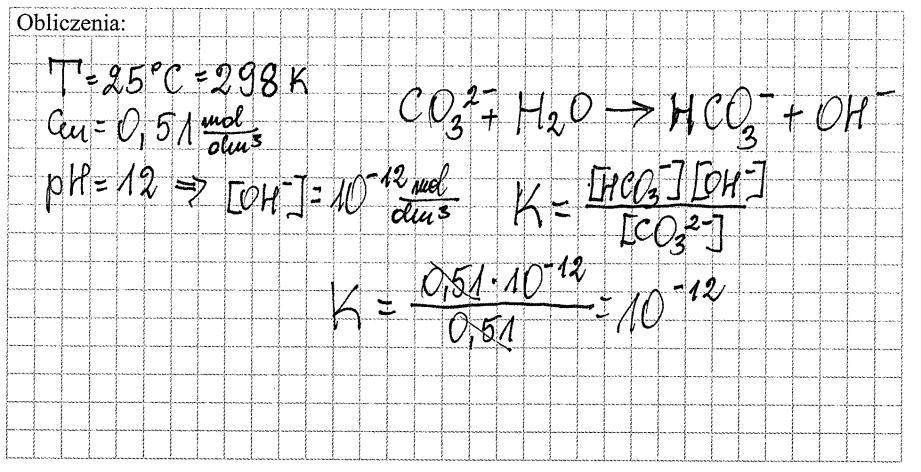 Obliczenia:
T = 25°C = 298 K
Cm = 0,51 mol/dm³
pH = 12 ⇒ [OH⁻] = 10⁻¹² mol/dm³
CO₃²⁻ + H₂O → HCO₃⁻ + OH⁻
K = [HCO₃⁻][OH⁻] / [CO₃²⁻]
K = 0,51 · 10⁻¹² / 0,51 = 10⁻¹²